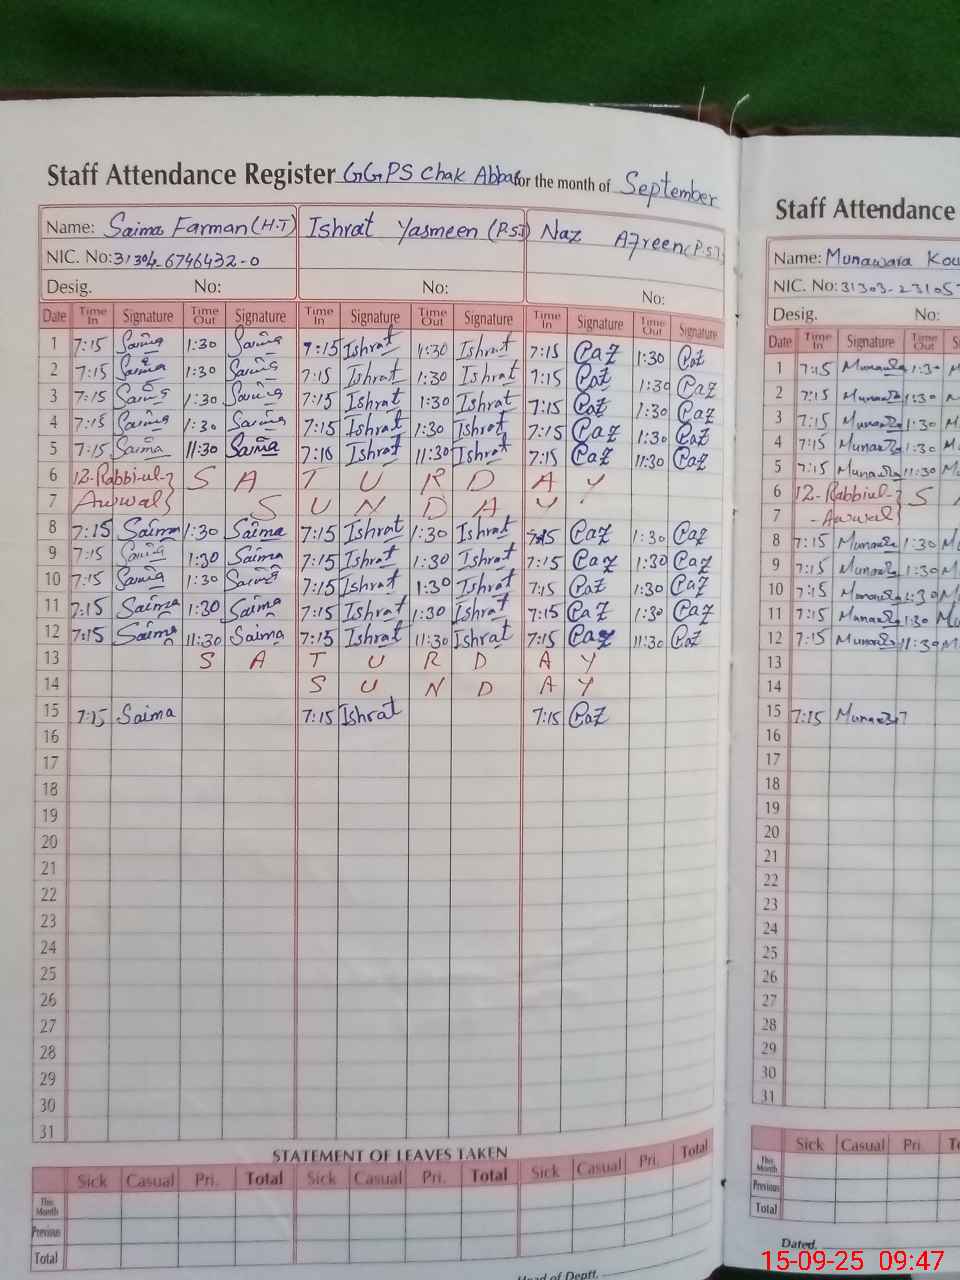 Staff Attendance Register GGPS Chak Abbas for the month of September
Name: Saima Farman (H.T) Ishrat Yasmeen (P.S.T) Naz Afreen (P.S.T)
NIC. No: 31304-6746432-0
Desig. No: No: No:
Date Time In Signature Time Out Signature Time In Signature Time Out Signature Time In Signature Time Out Signature
1 7:15 Saima 1:30 Saima 7:15 Ishrat 1:30 Ishrat 7:15 1:30
2 7:15 Saima 1:30 Saima 7:15 Ishrat 1:30 Ishrat 7:15 1:30
3 7:15 Saima 1:30 Saima 7:15 Ishrat 1:30 Ishrat 7:15 1:30
4 7:15 Saima 1:30 Saima 7:15 Ishrat 1:30 Ishrat 7:15 1:30
5 7:15 Saima 11:30 Saima Ishrat 11:30 Ishrat 7:15 11:30
6 12-Rabbiul- S A T U R D A Y
7 Awwal} S U N D A Y
8 7:15 Saima 1:30 Saima 7:15 Ishrat 1:30 Ishrat 7:15 1:30
9 7:15 Saima 1:30 Saima 7:15 Ishrat 1:30 Ishrat 7:15 1:30
10 7:15 Saima 1:30 Saima 7:15 Ishrat 1:30 Ishrat 7:15 1:30
11 7:15 Saima 1:30 Saima 7:15 Ishrat 1:30 Ishrat 7:15 1:30
12 7:15 Saima 11:30 Saima 7:15 Ishrat 11:30 Ishrat 7:15 11:30
13 S A T U R D A Y
14 S U N D A Y
15 7:15 Saima 7:15 Ishrat 7:15
16
17
18
19
20
21
22
23
24
25
26
27
28
29
30
31
STATEMENT OF LEAVES TAKEN
Sick Casual Pri. Total Sick Casual Pri. Total Sick Casual Pri. Total
This Month
Previous
Total
Head of Deptt.
Staff Attendance
Name: Munawara
NIC. No: 31303-23105
Desig. No:
Date Time In Signature Time Out
1 7:15 1:30
2 7:15 1:30
3 7:15 1:30
4 7:15 1:30
5 7:15 11:30
6 12-Rabbiul-} S
7 -Awwal}
8 7:15 1:30
9 7:15 1:30
10 7:15 1:30
11 7:15 1:30
12 7:15 11:30
13
14
15 7:15
16
17
18
19
20
21
22
23
24
25
26
27
28
29
30
31
Sick Casual Pri.
This Month
Previous
Total
Dated.
15-09-25 09:47